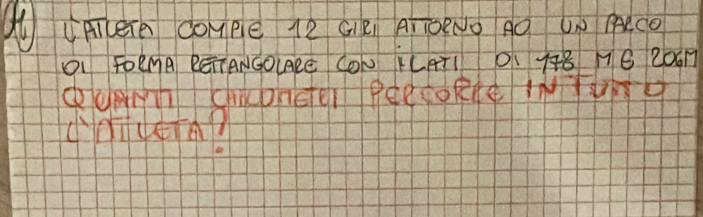 L'ATLETA COMPIE 12 GIRI ATTORNO AD UN PARCO
DI FORMA RETTANGOLARE CON I LATI DI 178 M E 206M
QUANTI CHILOMETRI PERCORRE IN TUTTO
L'ATLETA?